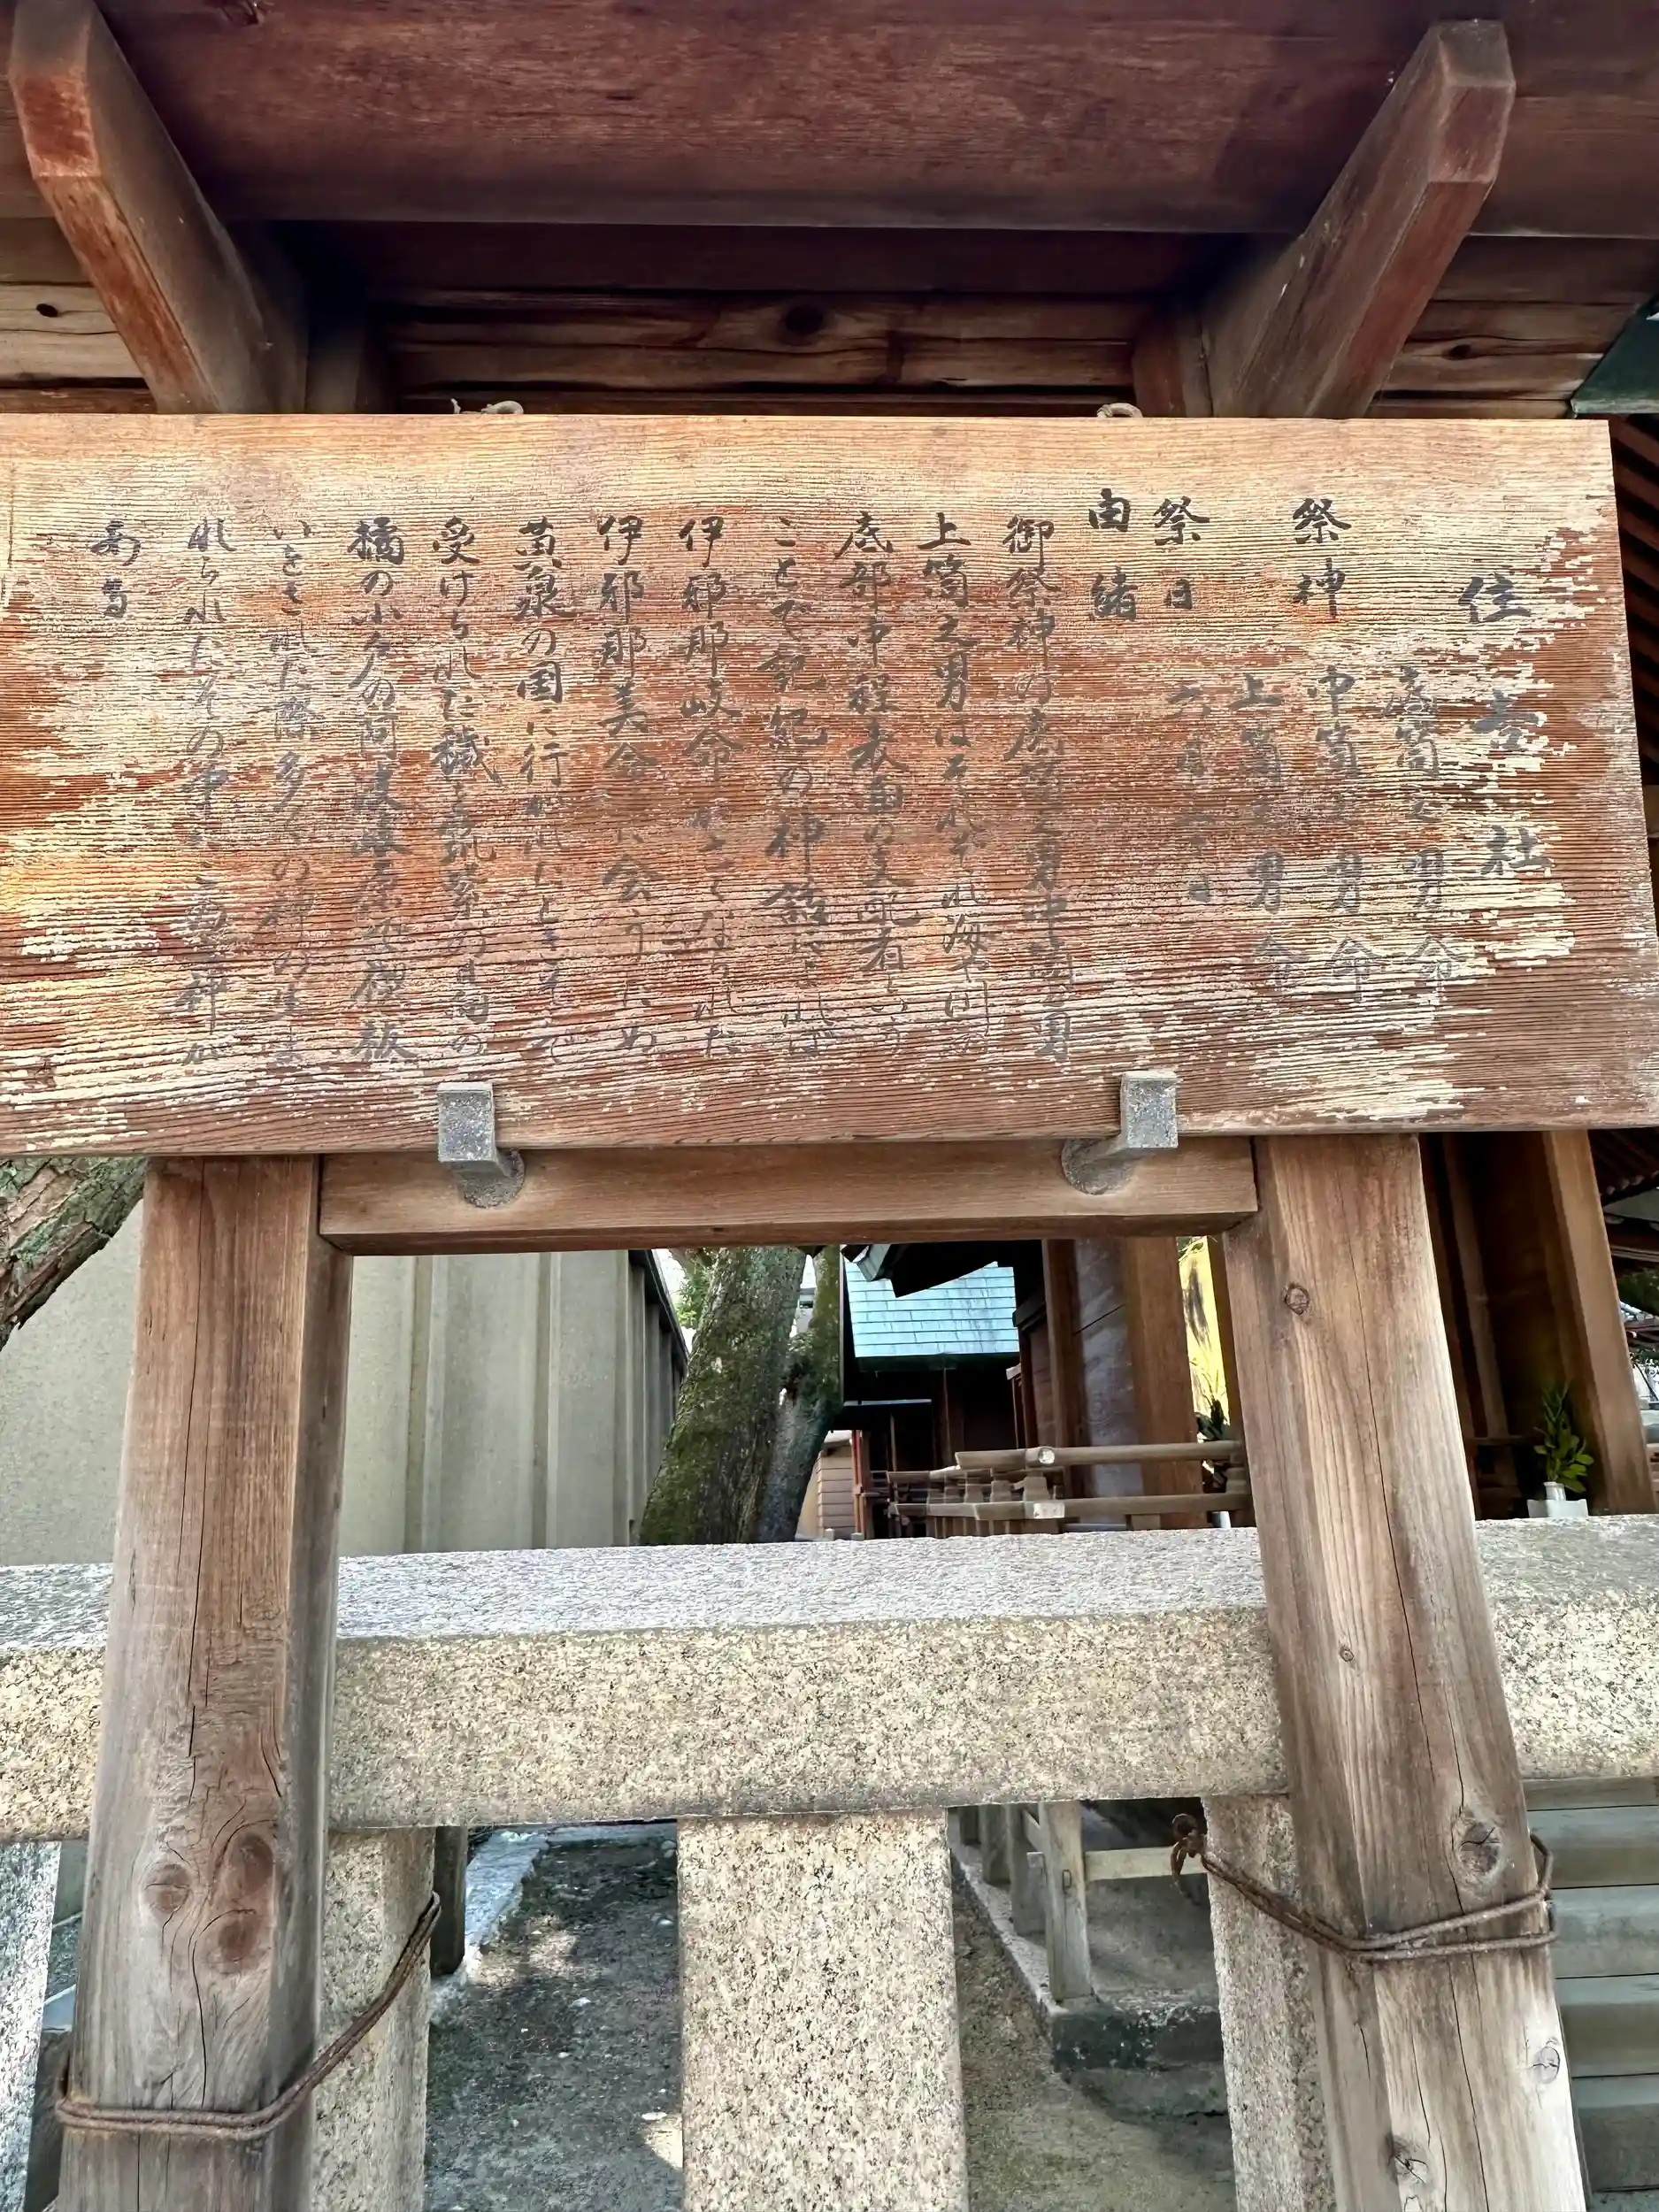 住吉社
底筒之男命
祭神 中筒之男命
上筒之男命
祭日 六月 日
由緒
御祭神の底筒之男中筒之男
上筒之男はそれぞれ海や川の
底部中程表面の支配者という
ことで記紀の神話によれば
伊耶那岐命がなくなられた
伊耶那美命に会うため
黄泉の国に行かれたときそこで
受けられた穢を筑紫の日向の
橘の小戸の阿波岐原で禊祓
いをされた際多くの神の生ま
れられたその中の 神が
ある